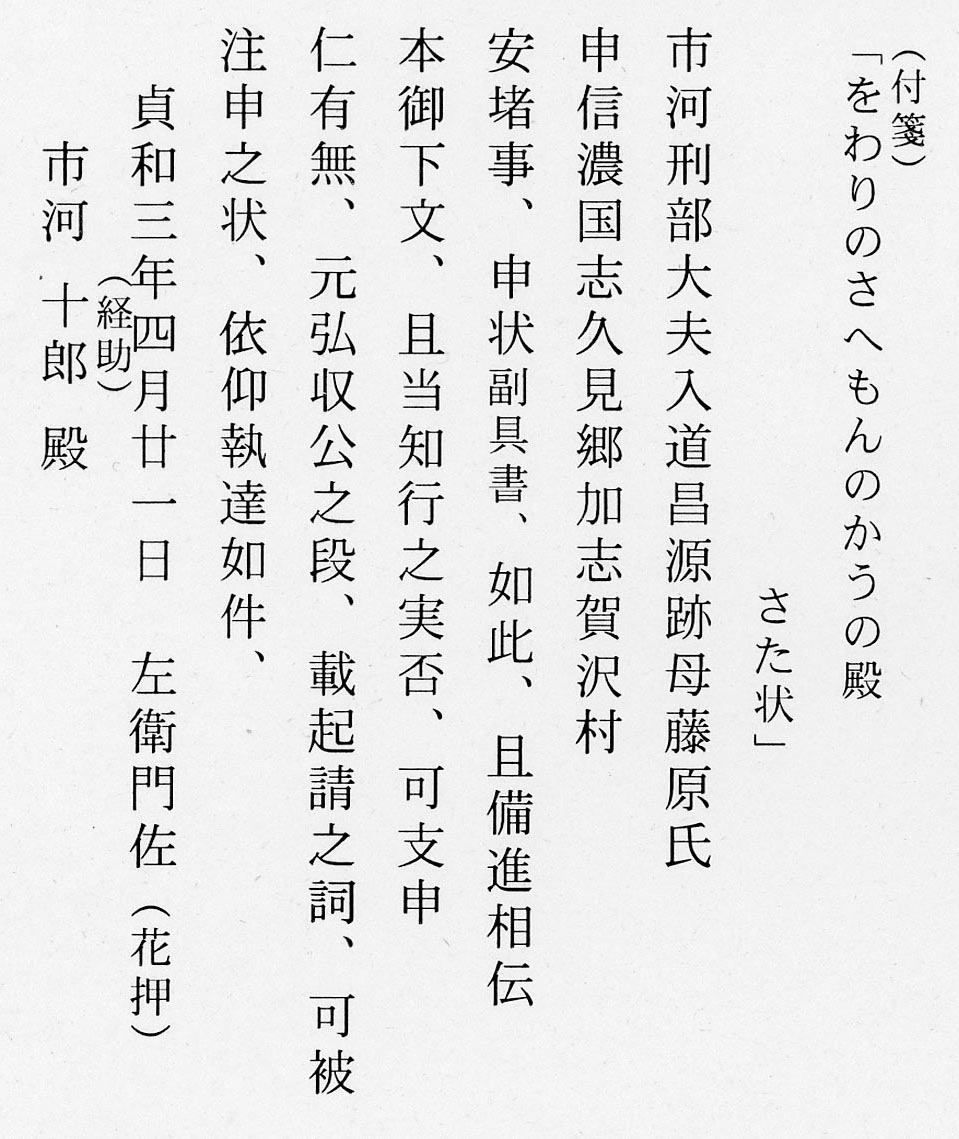 （付箋）
「をわりのさへもんのかうの殿
さた状」
市河刑部大夫入道昌源跡母藤原氏
申信濃国志久見郷加志賀沢村
安堵事、申状副具書、如此、且備進相伝
本御下文、且当知行之実否、可支申
仁有無、元弘収公之段、載起請之詞、可被
注申之状、依仰執達如件、
貞和三年四月廿一日　左衛門佐（花押）
（経助）
市河十郎殿